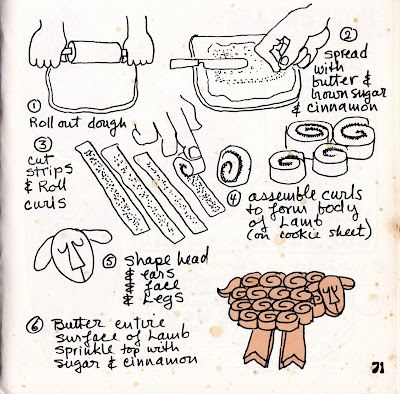 ①
Roll out dough
②
spread
with
butter &
brown sugar
& cinnamon
③
cut
strips
& Roll
curls
④ assemble curls
to form body
of Lamb
(on cookie sheet)
⑤ Shape head
& ears
& face
& Legs
⑥ Butter entire
surface of Lamb
sprinkle top with
sugar & cinnamon
71